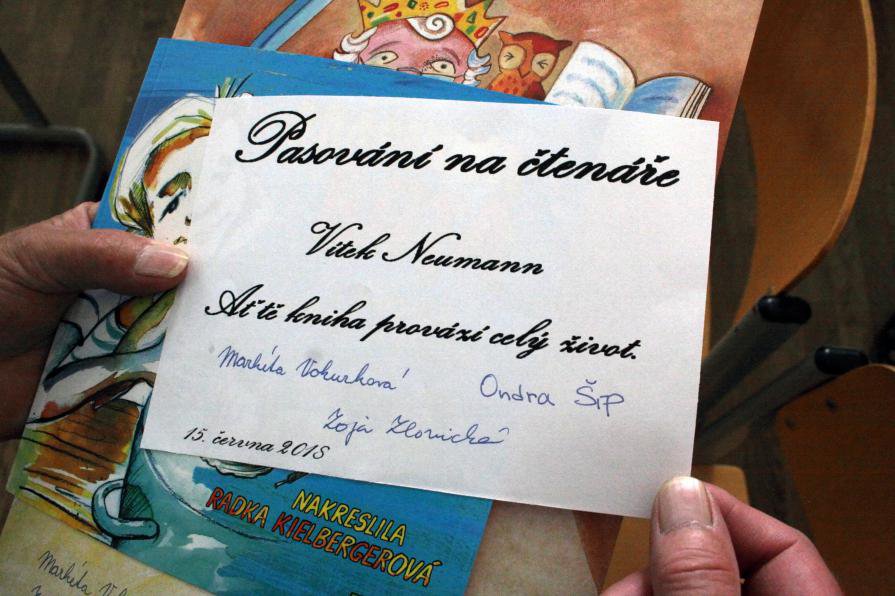 Pasování na čtenáře
Vítek Neumann
Ať tě kniha provází celý život.
Markéta Vokurková
Ondra Šíp
Zoja Zlonická
15. června 2018
NAKRESLILA
RADKA KIELBERGEROVÁ
Markéta